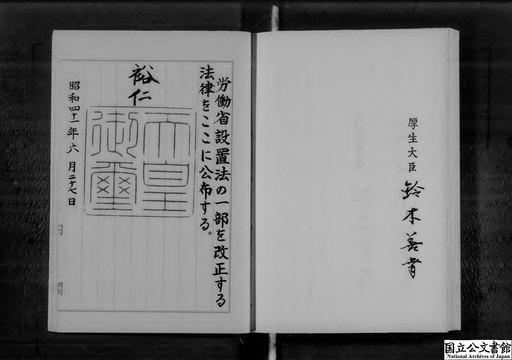 厚生大臣 鈴木善幸
労働省設置法の一部を改正する
法律をここに公布する。
裕仁
天皇
御璽
昭和四十一年六月二十七日
国立公文書館
National Archives of Japan